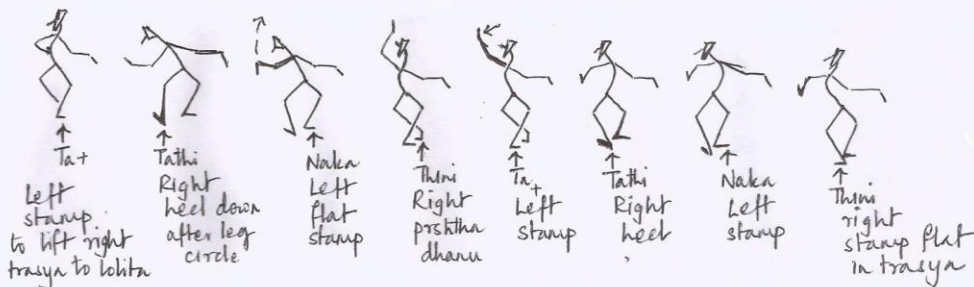 Ta+
Left
stamp
to lift right
trasya to lolita
Tathi
Right
heel down
after leg
circle
Naka
Left
flat
stamp
Thini
Right
prshtha
dhanu
Ta+
Left
stamp
Tathi
Right
heel
Naka
Left
stamp
Thini
right
stamp flat
in trasya